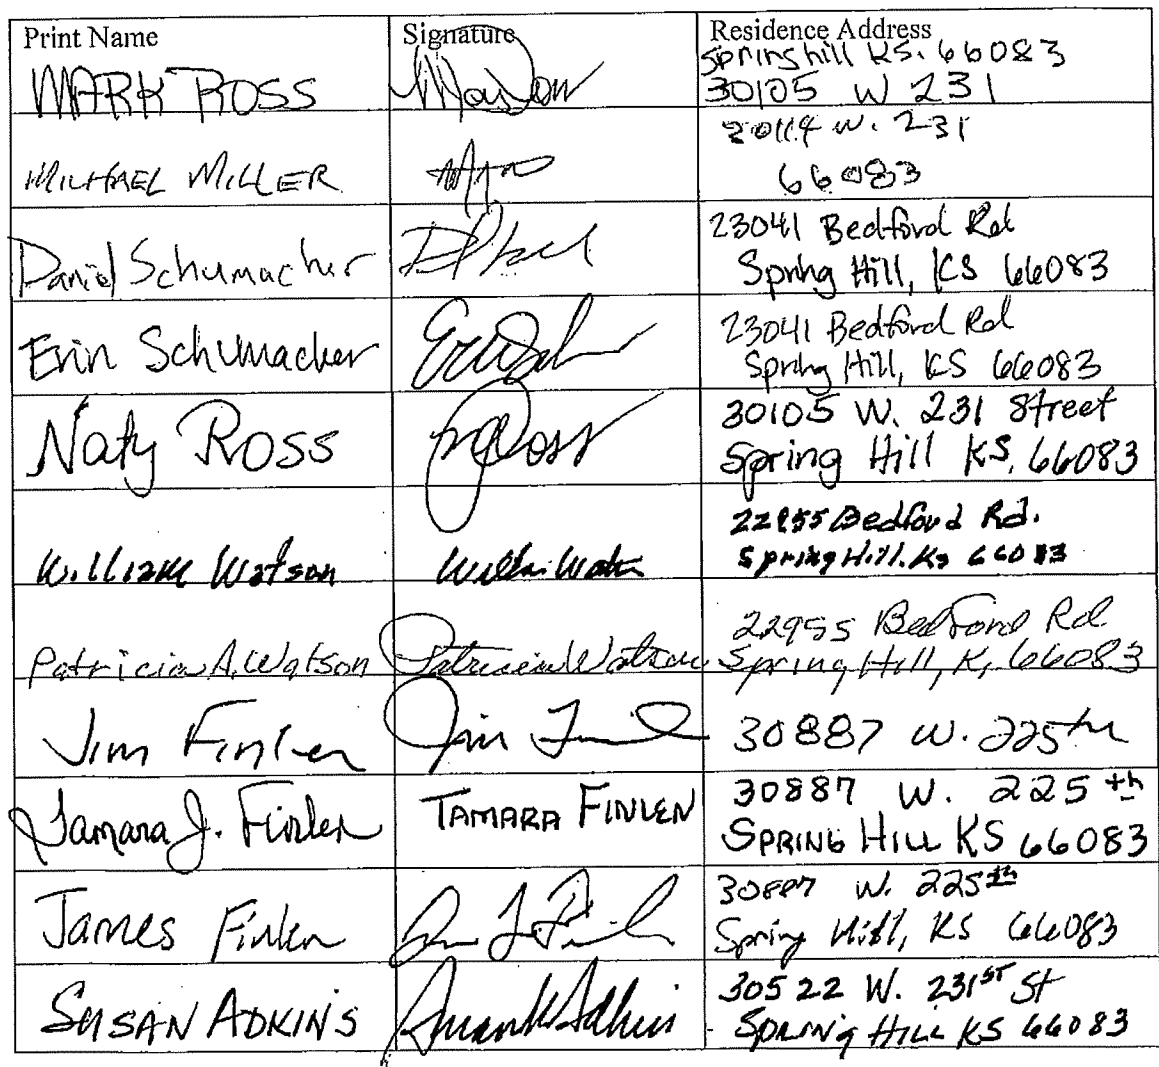 Print Name Signature Residence Address
MARK ROSS Springhill KS. 66083
30105 W 231
MICHAEL MILLER W. 231
66083
Daniel Schumacher 23041 Bedford Rd
Spring Hill, KS 66083
Erin Schumacher 23041 Bedford Rd
Spring Hill, KS 66083
Naty Ross Ross 30105 W. 231 Street
Spring Hill KS, 66083
William Watson 22955 Bedford Rd.
Spring Hill. Ks 66083
Patricia A. Watson Patricia Watson 22955 Bedford Rd
Spring Hill, Ks 66083
Jim Finlen Jim 30887 W. 225th
Tamara J. Finlen TAMARA FINLEN 30887 W. 225th
SPRING HILL KS 66083
James Finlen 30887 W. 225th
Spring Hill, KS 66083
SUSAN ADKINS Susan K Adkins 30522 W. 231ST St
SPRING HILL KS 66083